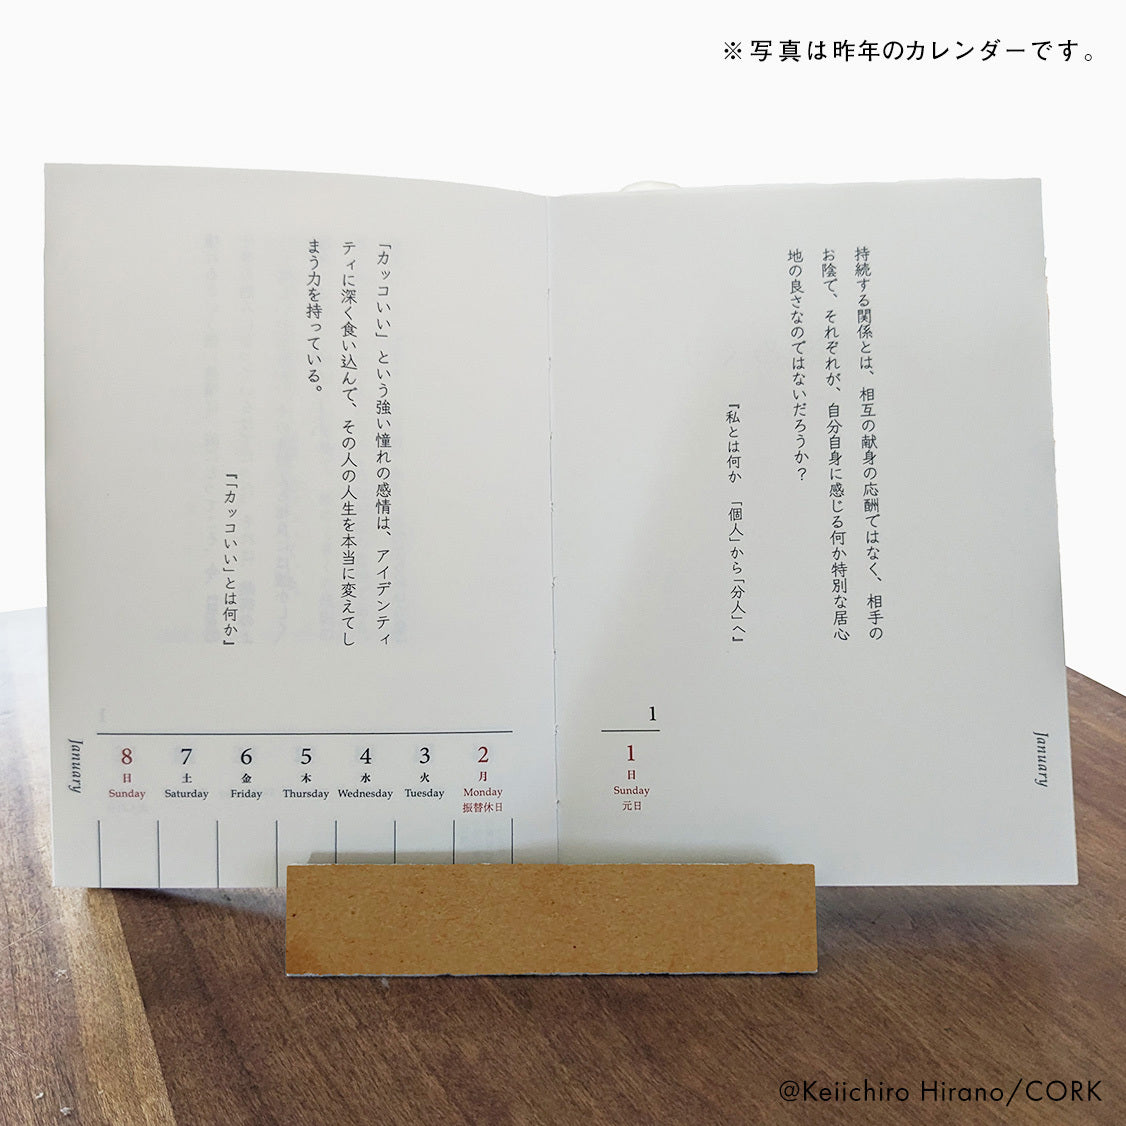 ※写真は昨年のカレンダーです。
持続する関係とは、相互の献身の応酬ではなく、相手の
お陰で、それぞれが、自分自身に感じる何か特別な居心
地の良さなのではないだろうか？
『私とは何か 「個人」から「分人」へ』
1
1
日
Sunday
元日
January
「カッコいい」という強い憧れの感情は、アイデンティ
ティに深く食い込んで、その人の人生を本当に変えてし
まう力を持っている。
『「カッコいい」とは何か』
8 7 6 5 4 3 2
日 土 金 木 水 火 月
Sunday Saturday Friday Thursday Wednesday Tuesday Monday
振替休日
January
@Keiichiro Hirano/CORK